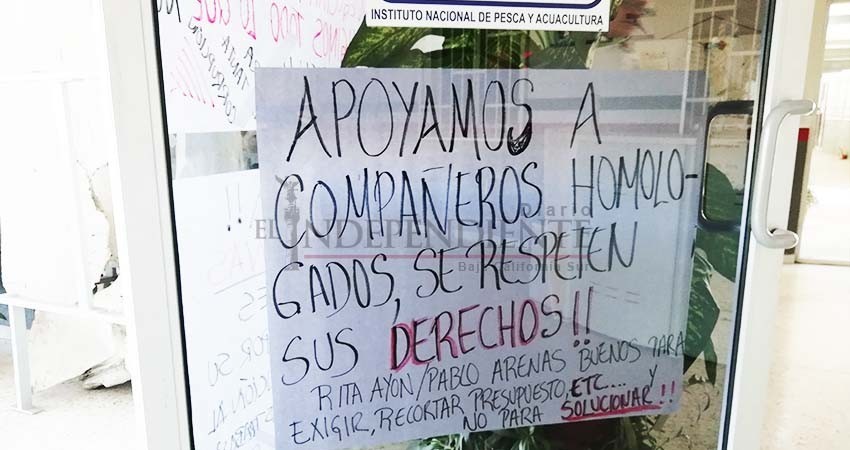 INSTITUTO NACIONAL DE PESCA Y ACUACULTURA
APOYAMOS A
COMPAÑEROS HOMOLO-
GADOS, SE RESPETEN
SUS DERECHOS!!
RITA AYON/PABLO ARENAS BUENOS PARA
EXIGIR, RECORTAR PRESUPUESTO, ETC.... Y
NO PARA SOLUCIONAR!!
Diario
EL INDEPENDIENTE
Baja California Sur